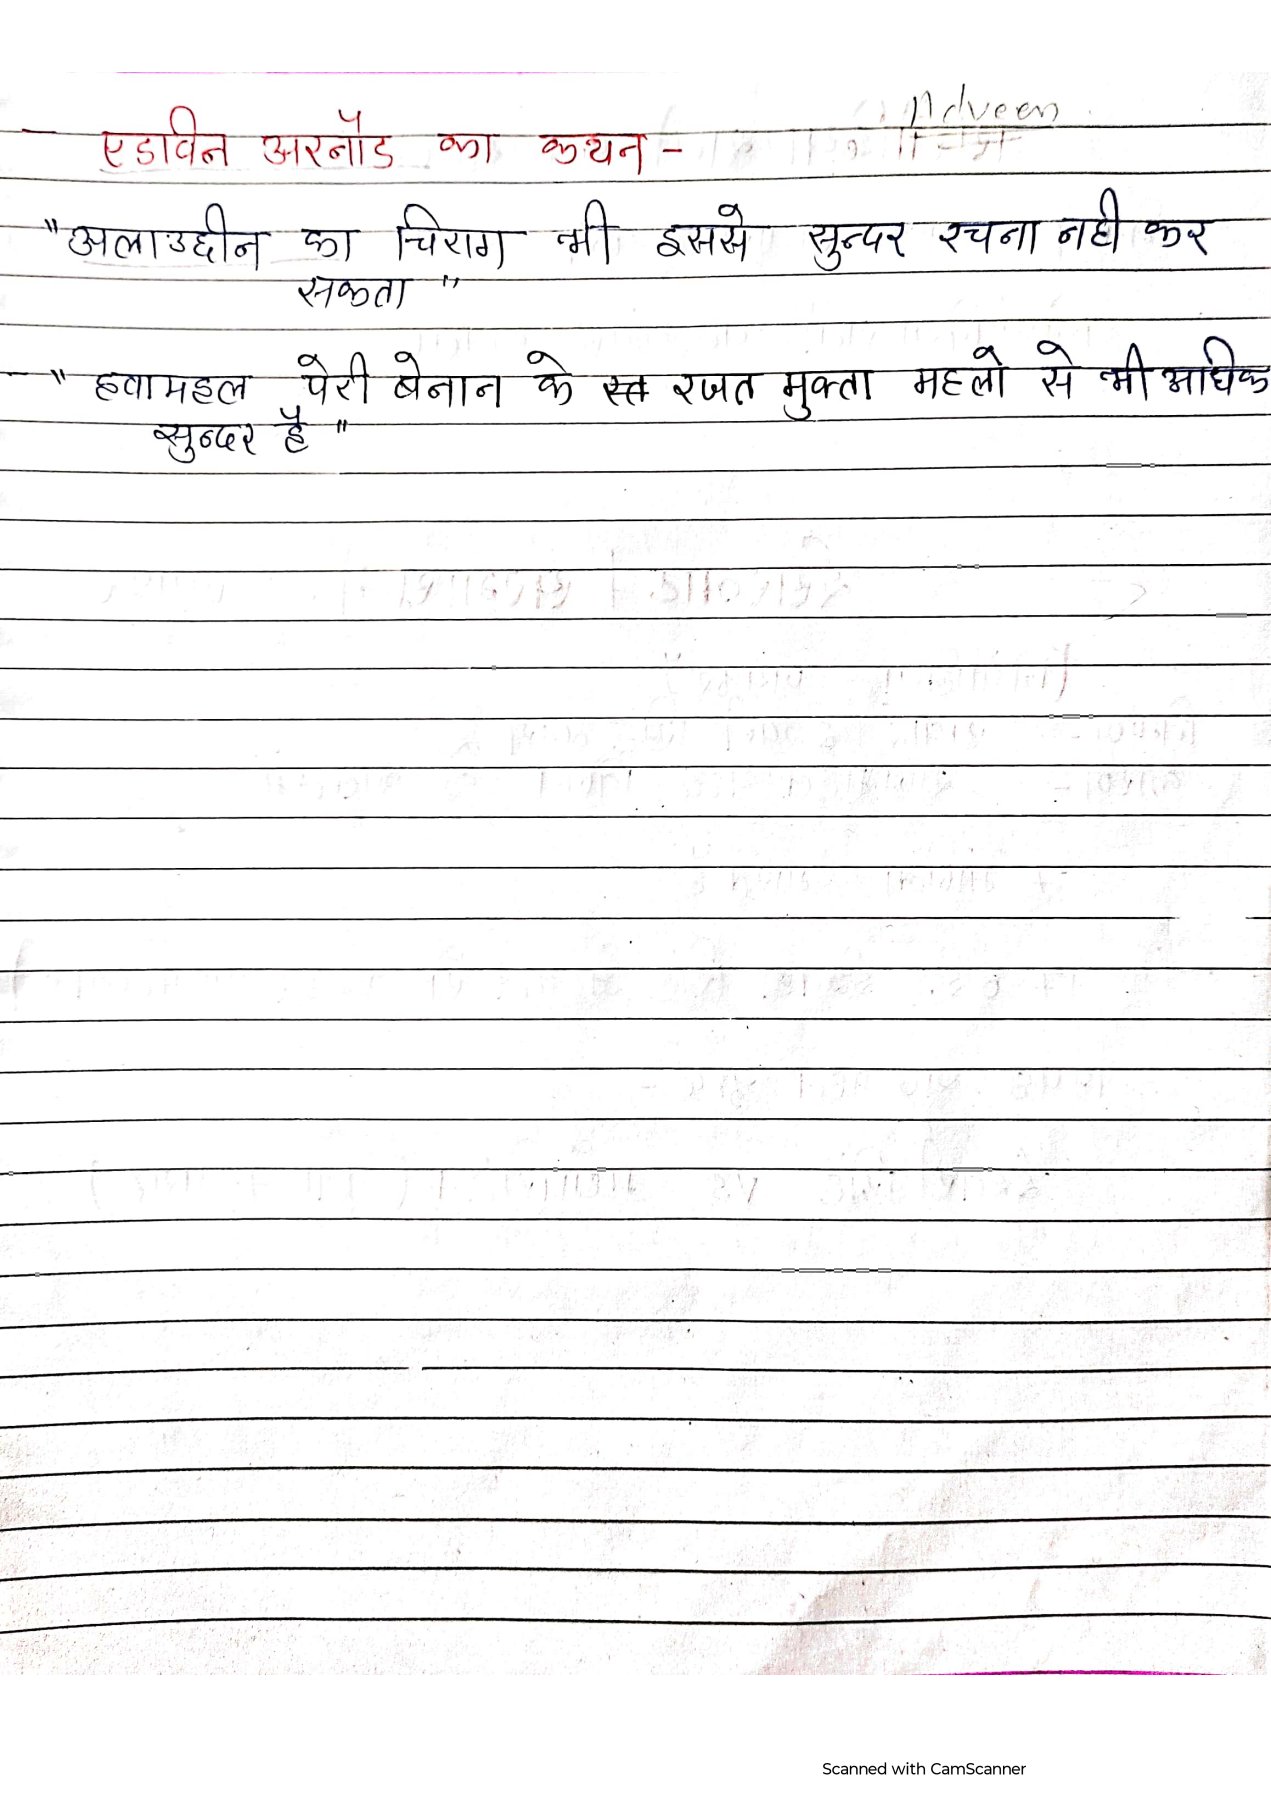 एडविन अरनॉड का कथन -
"अलाउद्दीन का चिराग भी इससे सुन्दर रचना नही कर
सकता"
- "हवामहल पेरी बेनान के रजत मुक्ता महलो से भी अधिक
सुन्दर है"
Scanned with CamScanner